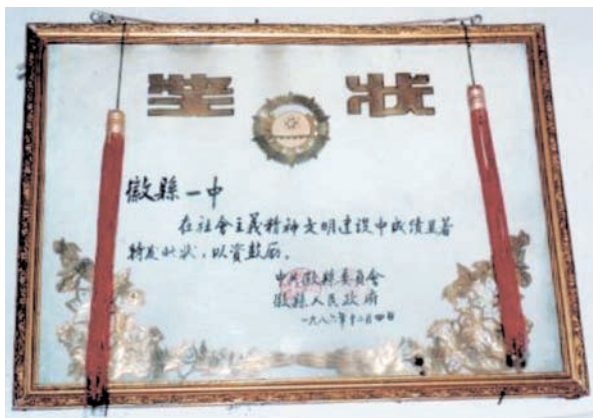 奖状
徽縣一中
在社會主義精神文明建設中成績显著
特发此状，以资鼓励。
中共徽縣委員會
徽縣人民政府
一九八六年十二月四日